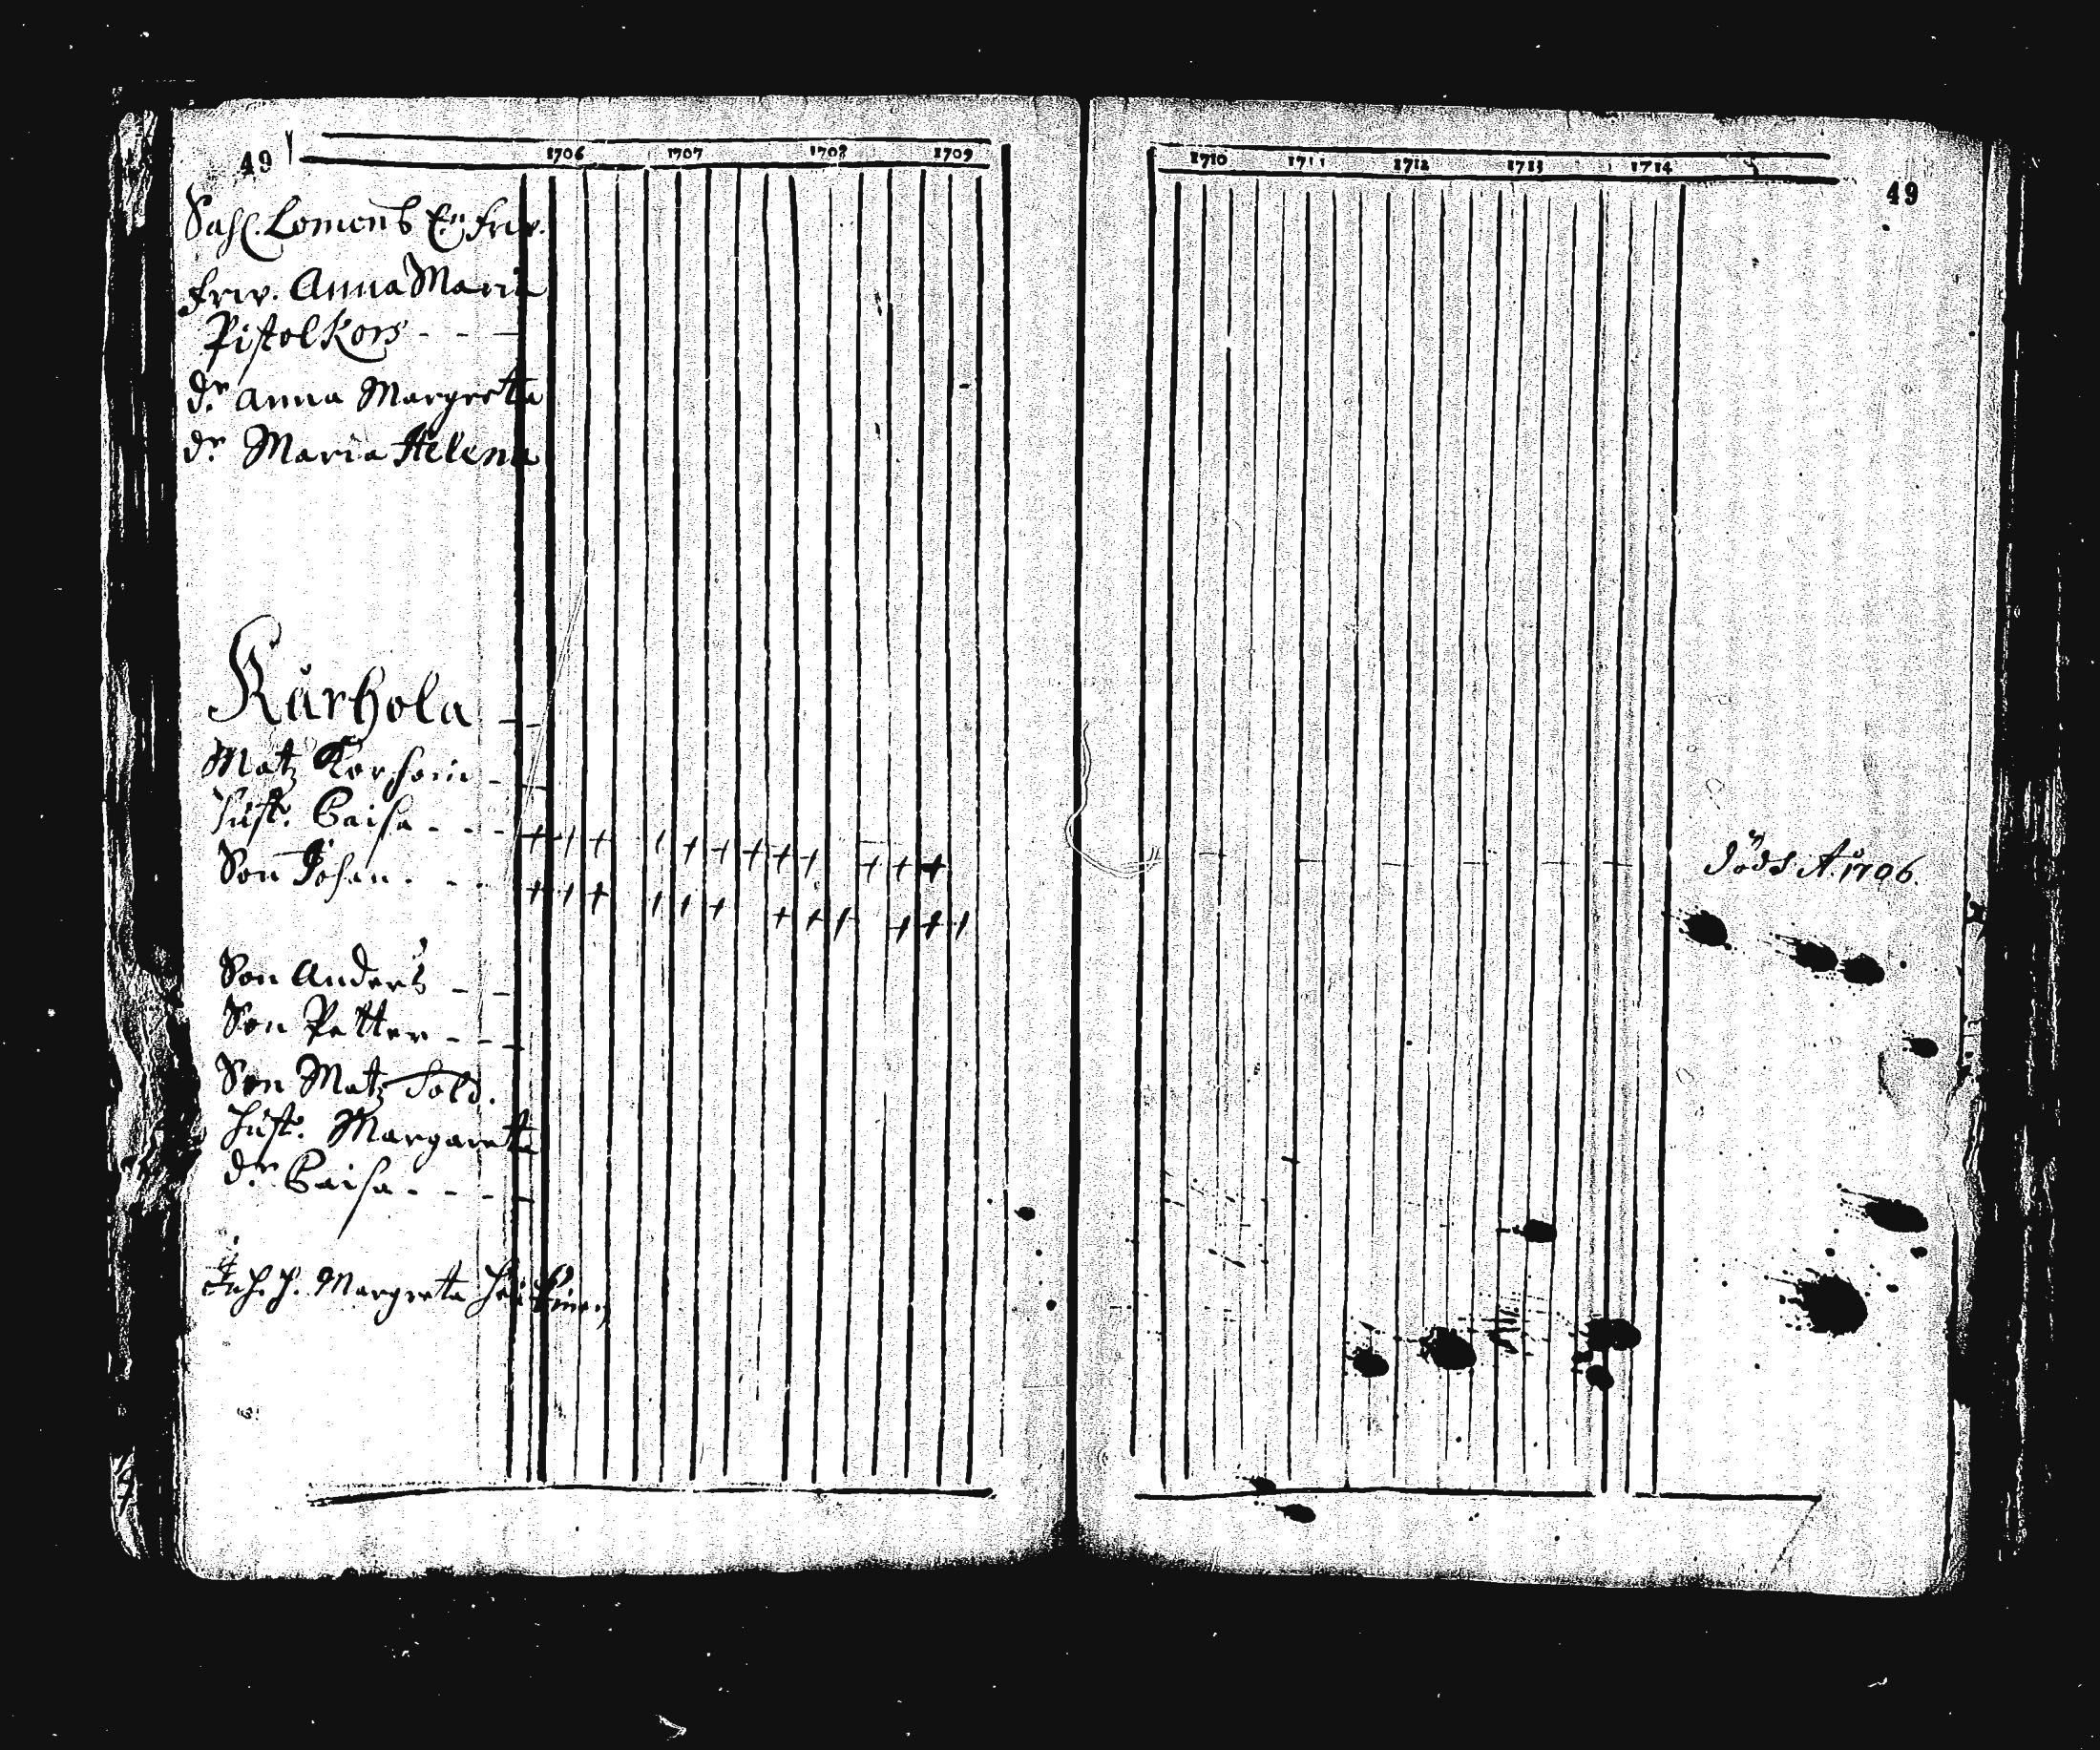 49
1706 1707 1708 1709
Sahl. Lomens En. Frw.
Frw. Anna Maria
Pistolkors - - -
dr. Anna Margreta
dr. Maria Helena
Kårhola - -
Matz Korhoin - -
Hust. Caisa - - -
Son Johan. - -
Son Anders - -
Son Petter - - -
Son Matz Sold.
Hust. Margareta
dr. Caisa - - - -
Inh. h. Margreta
1710 1711 1712 1713 1714
49
dödh Ao. 1706.